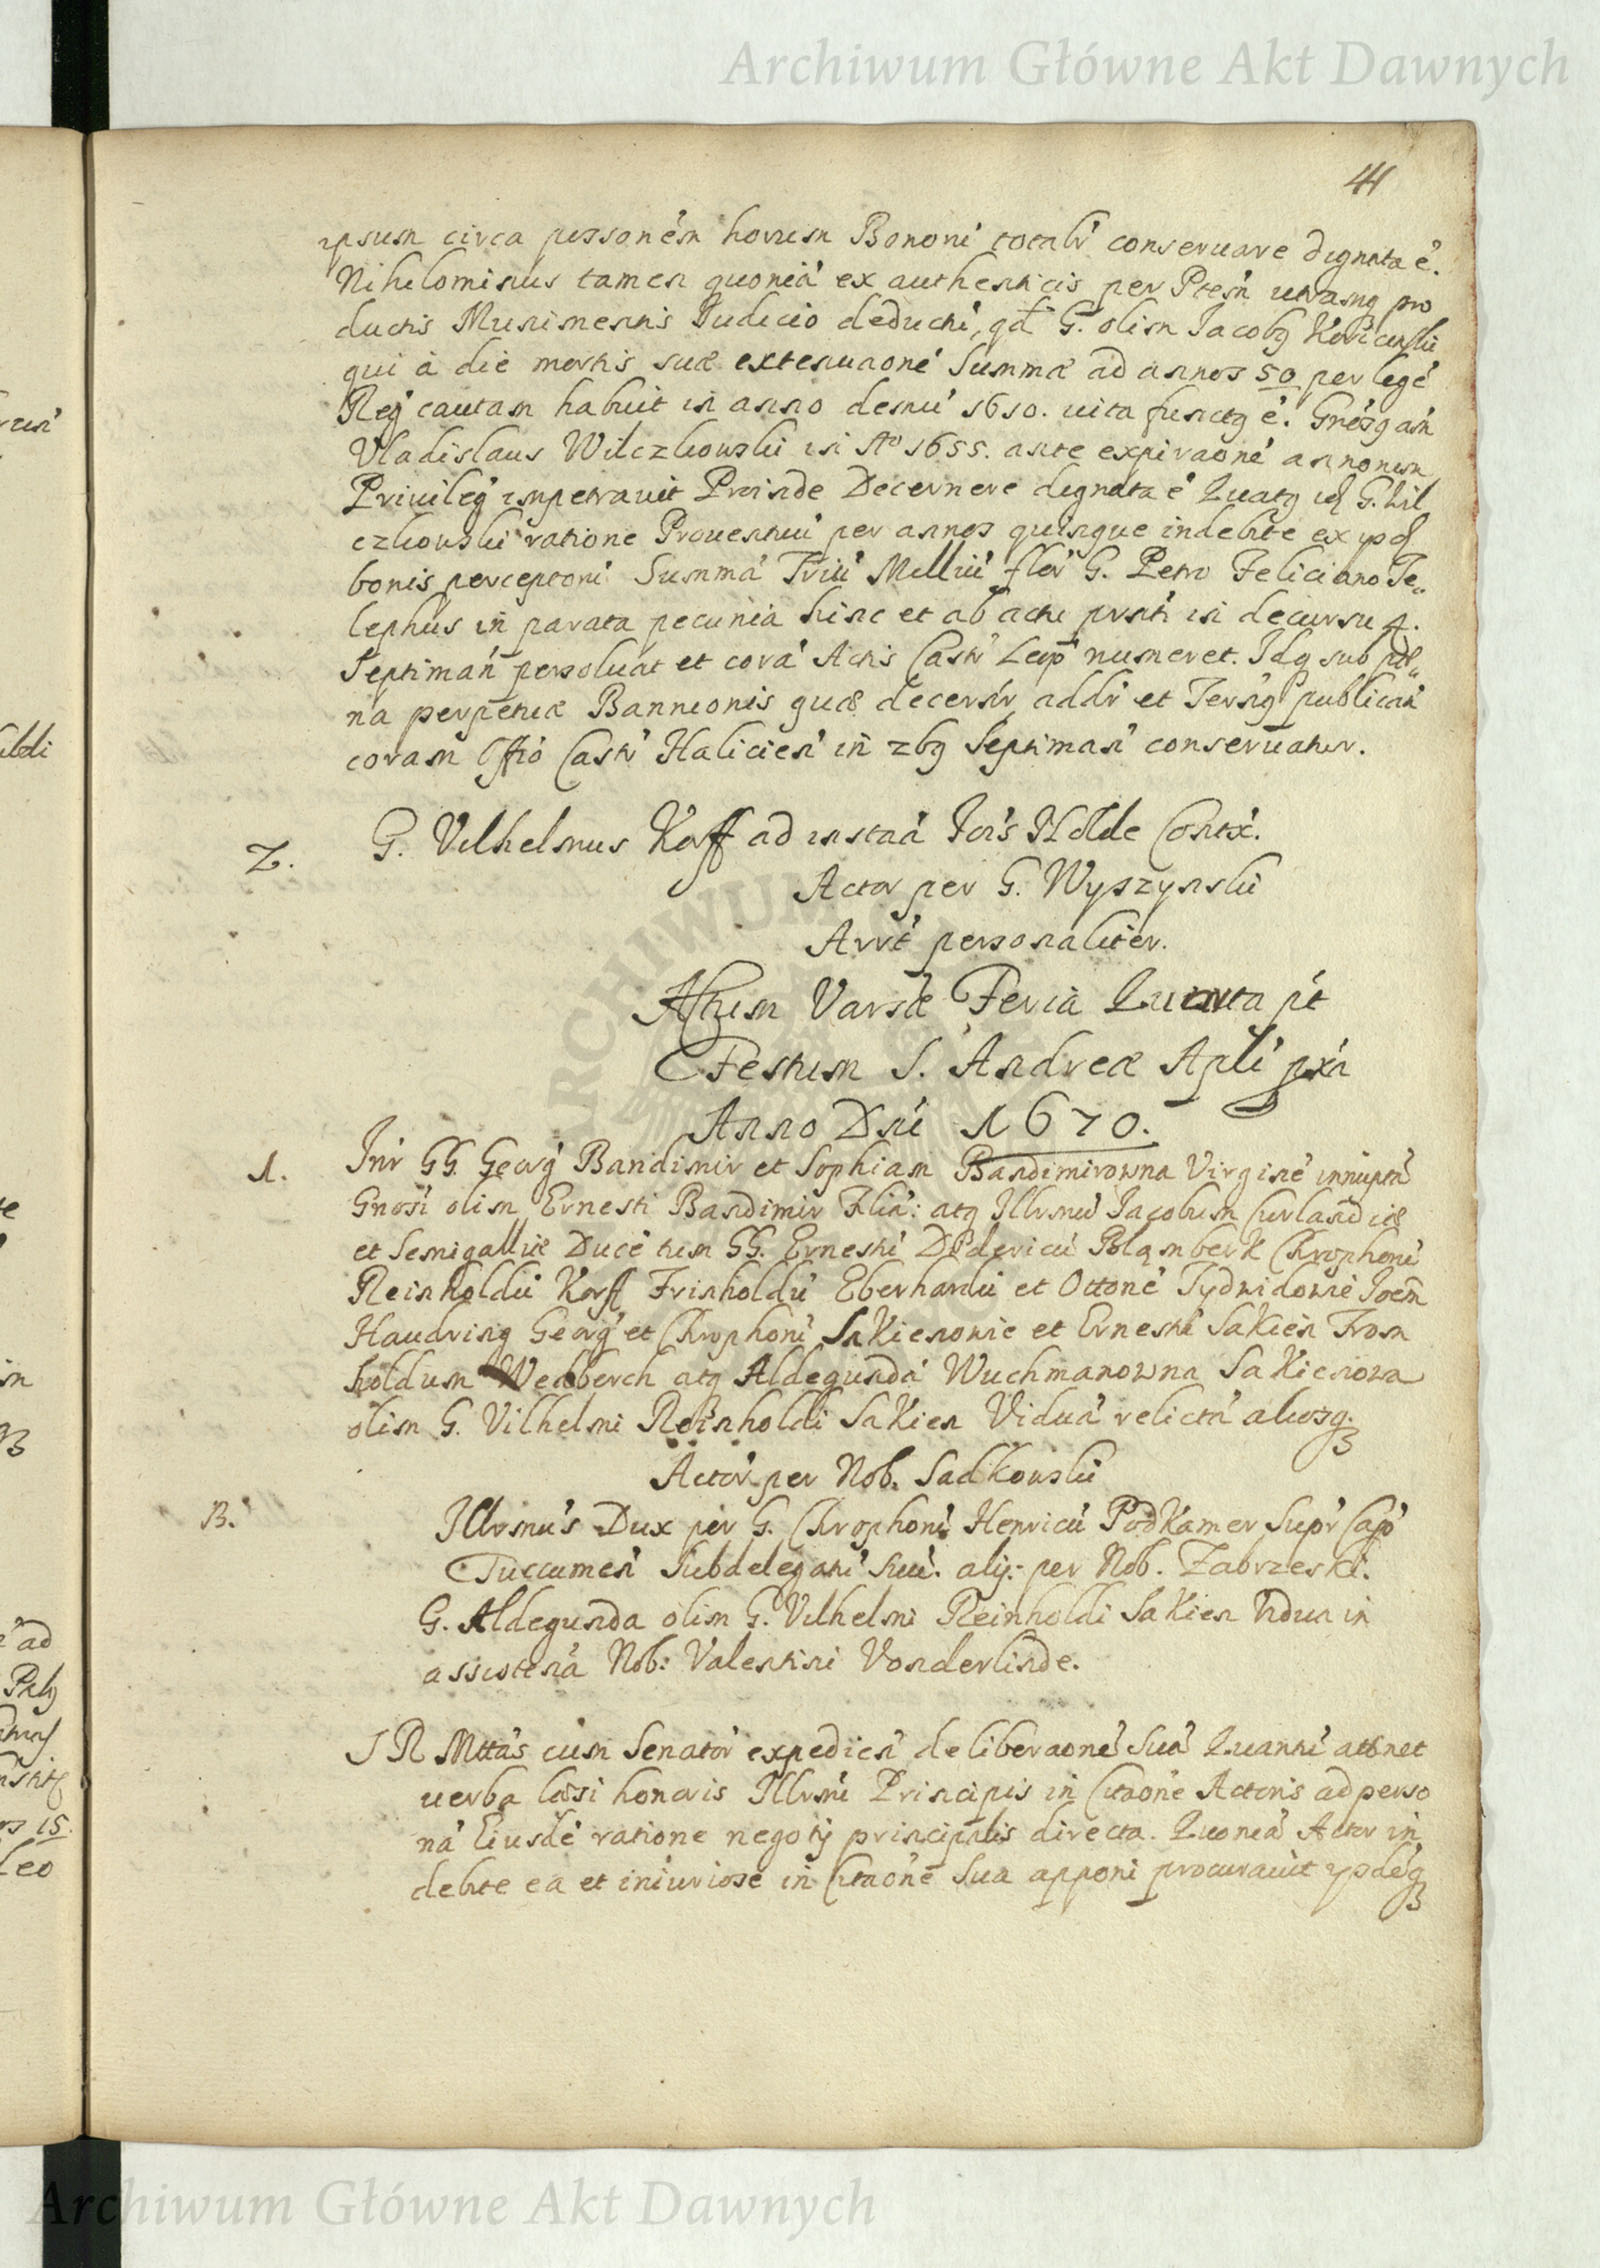 Archiwum Główne Akt Dawnych
41
ipsum circa possoném horum Bonorú totalr conseruare dignata é.
Nihilominus tamen quoniá ex authenticis per Ptem utramq pro
ductis Munimentis Iudicio deducti, qd G. olim Iacobq
qui à die mortis suæ extenuaoné Summæ ad annos 50 per legé
Reg cautam habuit in anno demú 1610. uita functq é. Gnósq aút
Vladislaus Wilczkowski in Aº 1655. ante expiraoné annorum
Priuileg impetrauit Proinde Decernere dignata é Quatq G. Wil
czkowski ratione Prouentuú per annos quinque indebite ex
bonis perceptorú Summá Triú Milliú flór G. Petro Feliciano Te„
lephus in parata pecunia hinc et ab actu prnti in decursu 4.
Septimań persoluat et corá Actis Castr Leop numeret. Idq sub pœ„
na perpetuæ Bannionis quæ decernr addr et Termq publicań
coram Offio Castr Halicień in 2bq Septimań conseruatur.
2. G. Vilhelmus Korff ad instaá Iois Holde Contx.
Actor per G. Wyszynski
Arrt personaliter.
Actum Varsæ Feria Quinta pt
Festum S. Andreæ Apli pxa
Anno Dni 1670.
1. Intr GG. Georg Bandimir et Sophiam Bandimirowna Virginé innuptá
Gnosi olim Ernesti Bandimir Filiá: atq Illrmú Iacobum Curlandiæ
et Semigalliæ Ducé tum GG. Ernestú Dydericú Blamberk Chrophorú
Reinholdú Korff Frinholdú Eberhardú et Ottoné Tydwidowié Ioem
Haudring Georg et Chrophorú Sakienowie et Ernestú Sakien From
holdum Wedberch atq Aldegundá Wuchmanowna Sakienowa
olim G. Vilhelmi Reinholdi Sakien Viduá relictá aliosq.
Actor per Nob. Sadkowski
B. Illrmus Dux per G. Chrophorú Henricú Podkamer Supr Cap
Tuccumeń Subdelegatú Suú: alij: per Nob. Zabrzeski.
G. Aldegunda olim G. Vilhelmi Reinholdi Sakien Vidua in
assistená Nob: Valentini Vonderlinde.
S R Mttas cum Senator expedień deliberaoné Suá Quantú attinet
uerba læsi honoris Illrmi Principis in Citaoné Actoris ad perso
ná Eiusdé ratione negotij principalis directa. Quoniá Actor in
debite ea et iniuriose in Citaoné Sua apponi procurauit
Archiwum Główne Akt Dawnych